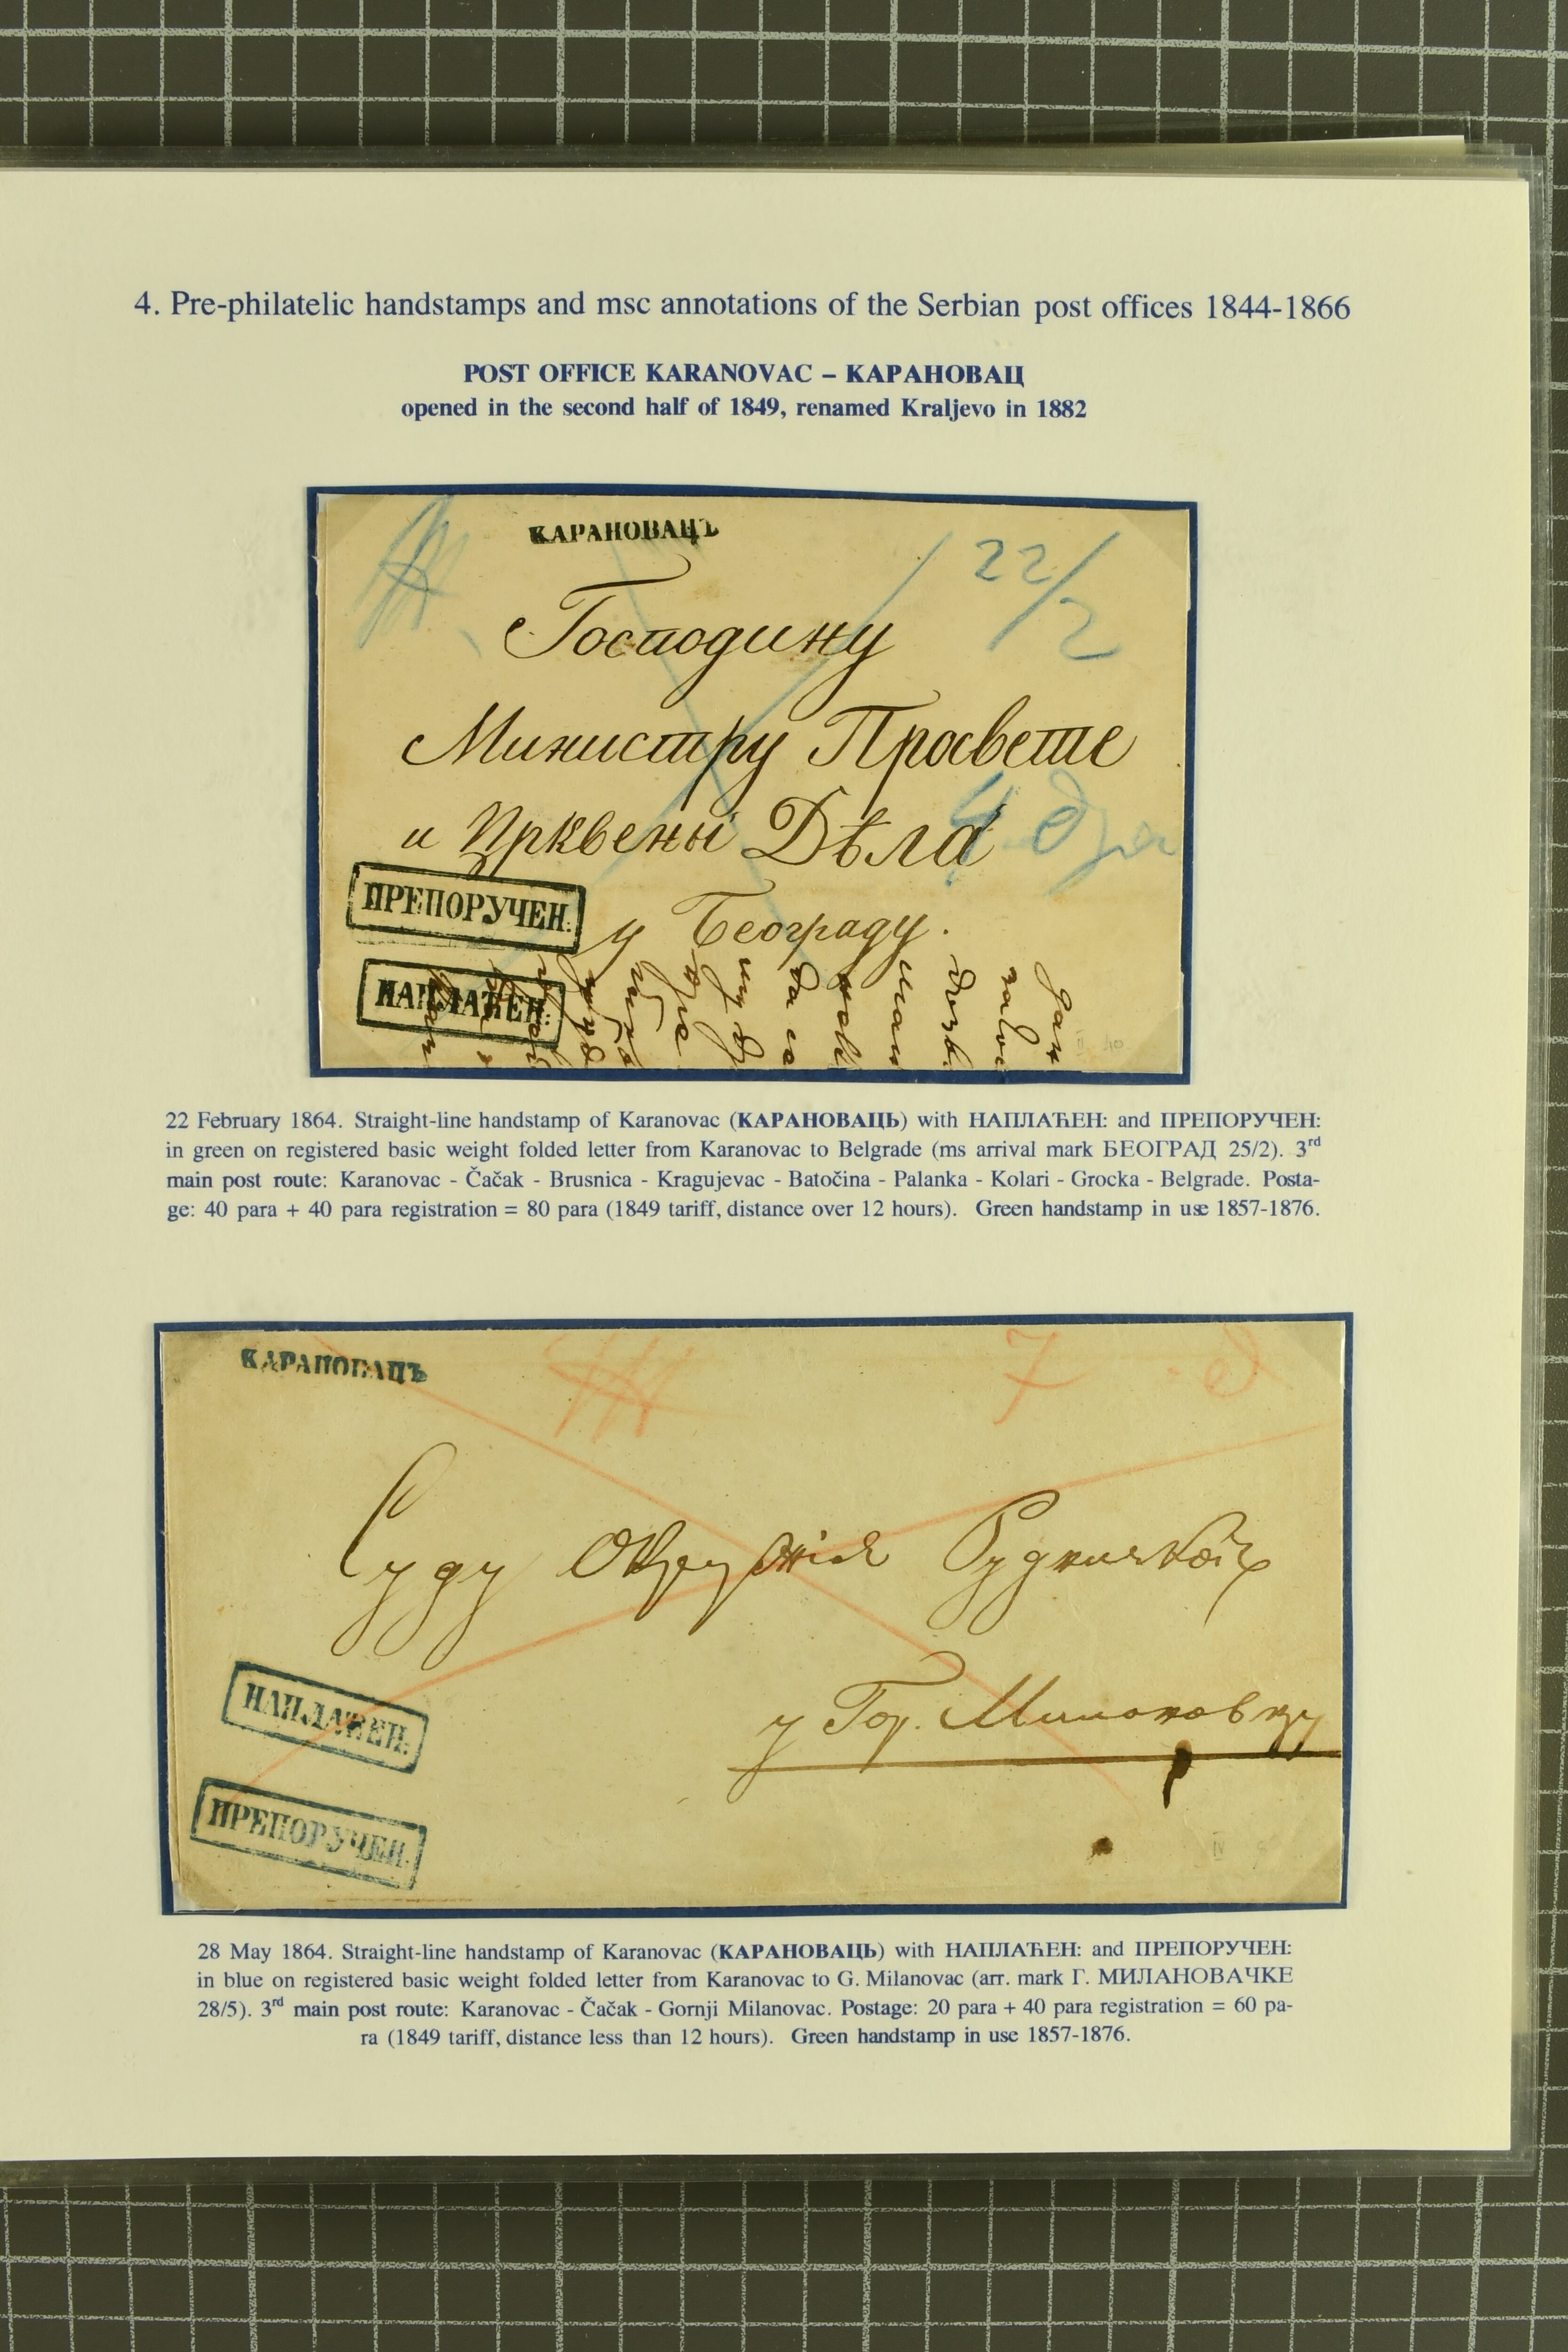 4. Pre-philatelic handstamps and msc annotations of the Serbian post offices 1844-1866
POST OFFICE KARANOVAC – КАРАНОВАЦ
opened in the second half of 1849, renamed Kraljevo in 1882
КАРАНОВАЦЪ
22/2
Господину
Министру Просвете
и Црквены Дѣла
ПРЕПОРУЧЕН:
у Београду.
НАПЛАЋЕН:
22 February 1864. Straight-line handstamp of Karanovac (КАРАНОВАЦЬ) with НАПЛАЋЕН: and ПРЕПОРУЧЕН:
in green on registered basic weight folded letter from Karanovac to Belgrade (ms arrival mark БЕОГРАД 25/2). 3rd
main post route: Karanovac - Čačak - Brusnica - Kragujevac - Batočina - Palanka - Kolari - Grocka - Belgrade. Posta-
ge: 40 para + 40 para registration = 80 para (1849 tariff, distance over 12 hours). Green handstamp in use 1857-1876.
КАРАНОВАЦЪ
7
Суду Окружія Рудничкогъ
у Гор. Милановцу
НАПЛАЋЕН:
ПРЕПОРУЧЕН:
28 May 1864. Straight-line handstamp of Karanovac (КАРАНОВАЦЬ) with НАПЛАЋЕН: and ПРЕПОРУЧЕН:
in blue on registered basic weight folded letter from Karanovac to G. Milanovac (arr. mark Г. МИЛАНОВАЧКЕ
28/5). 3rd main post route: Karanovac - Čačak - Gornji Milanovac. Postage: 20 para + 40 para registration = 60 pa-
ra (1849 tariff, distance less than 12 hours). Green handstamp in use 1857-1876.